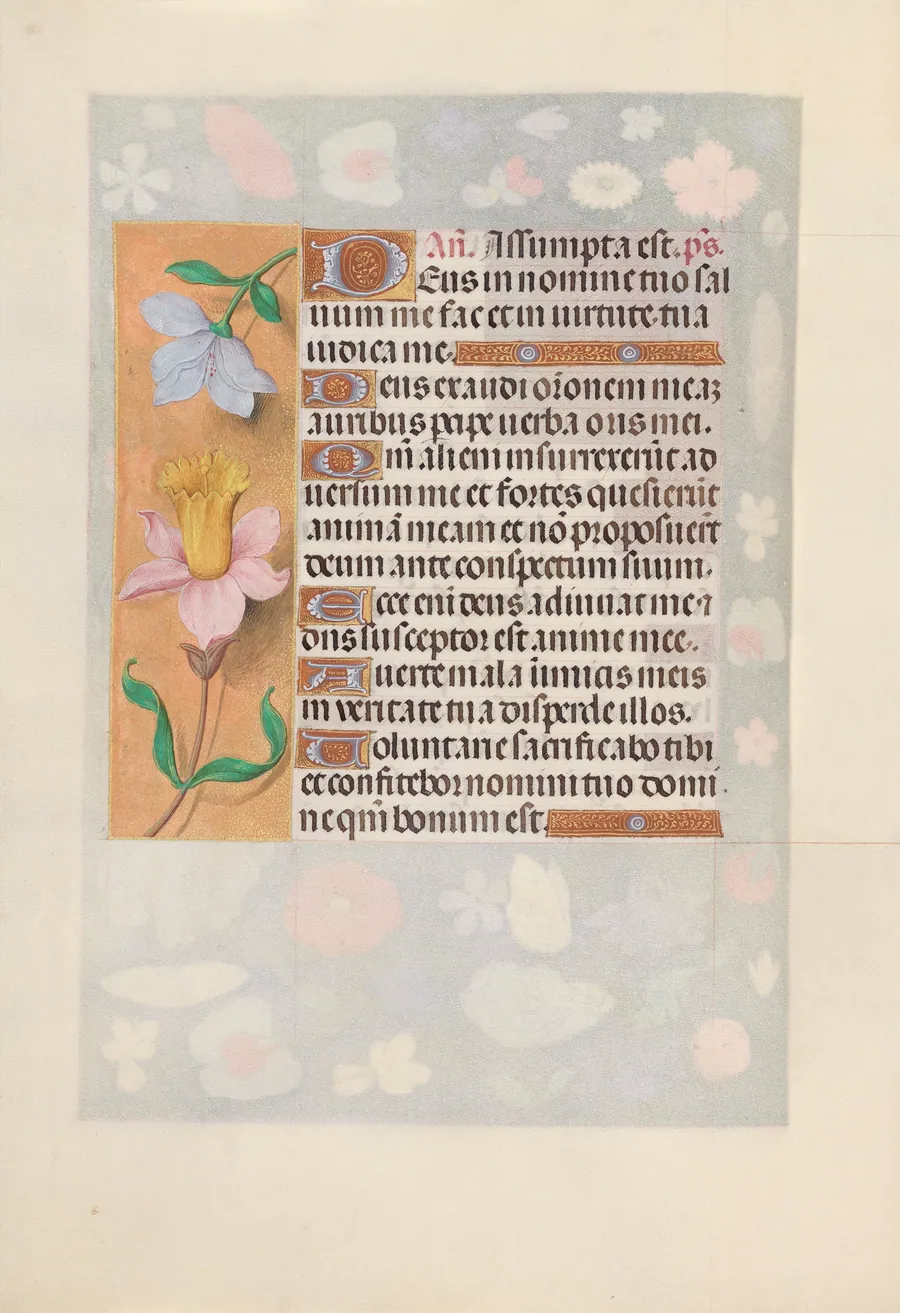 Añ. Assumpta est. p̄s.
Deus in nomine tuo sal
uum me fac et in uirtute tua
iudica me.
Deus exaudi or̄onem meaʒ
auribus ꝑcipe uerba oris mei.
Qm̄ alieni insurrexerūt ad
uersum me et fortes quesierūt
animā meam et nō proposuer̄t
deum ante conspectum suum.
Ecce eni deus adiuuat me ⁊
dn̄s susceptor est anime mee.
Auerte mala inimicis meis
in veritate tua disperde illos.
Voluntarie sacrificabo tibi
et confitebor nomini tuo domi
ne qm̄ bonum est.